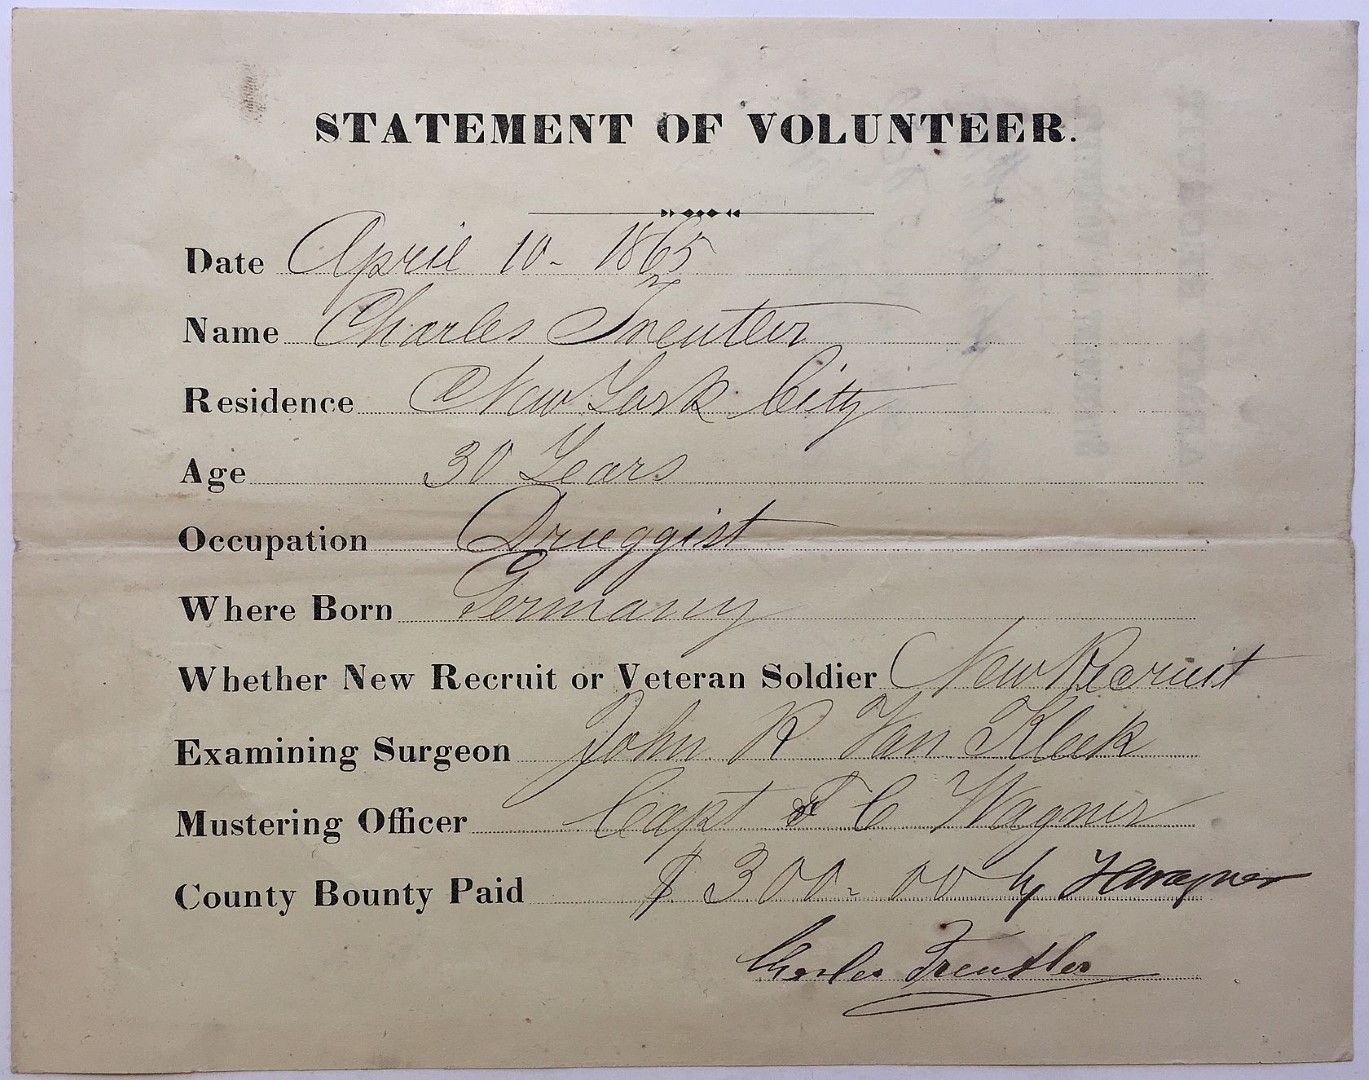 STATEMENT OF VOLUNTEER.
Date April 10 - 1865
Name Charles Treutler
Residence New York City
Age 30 Years
Occupation Druggist
Where Born Germany
Whether New Recruit or Veteran Soldier New Recruit
Examining Surgeon John R Van Kleek
Mustering Officer Capt F C Wagner
County Bounty Paid $300.00 by F C Wagner
Charles Treutler